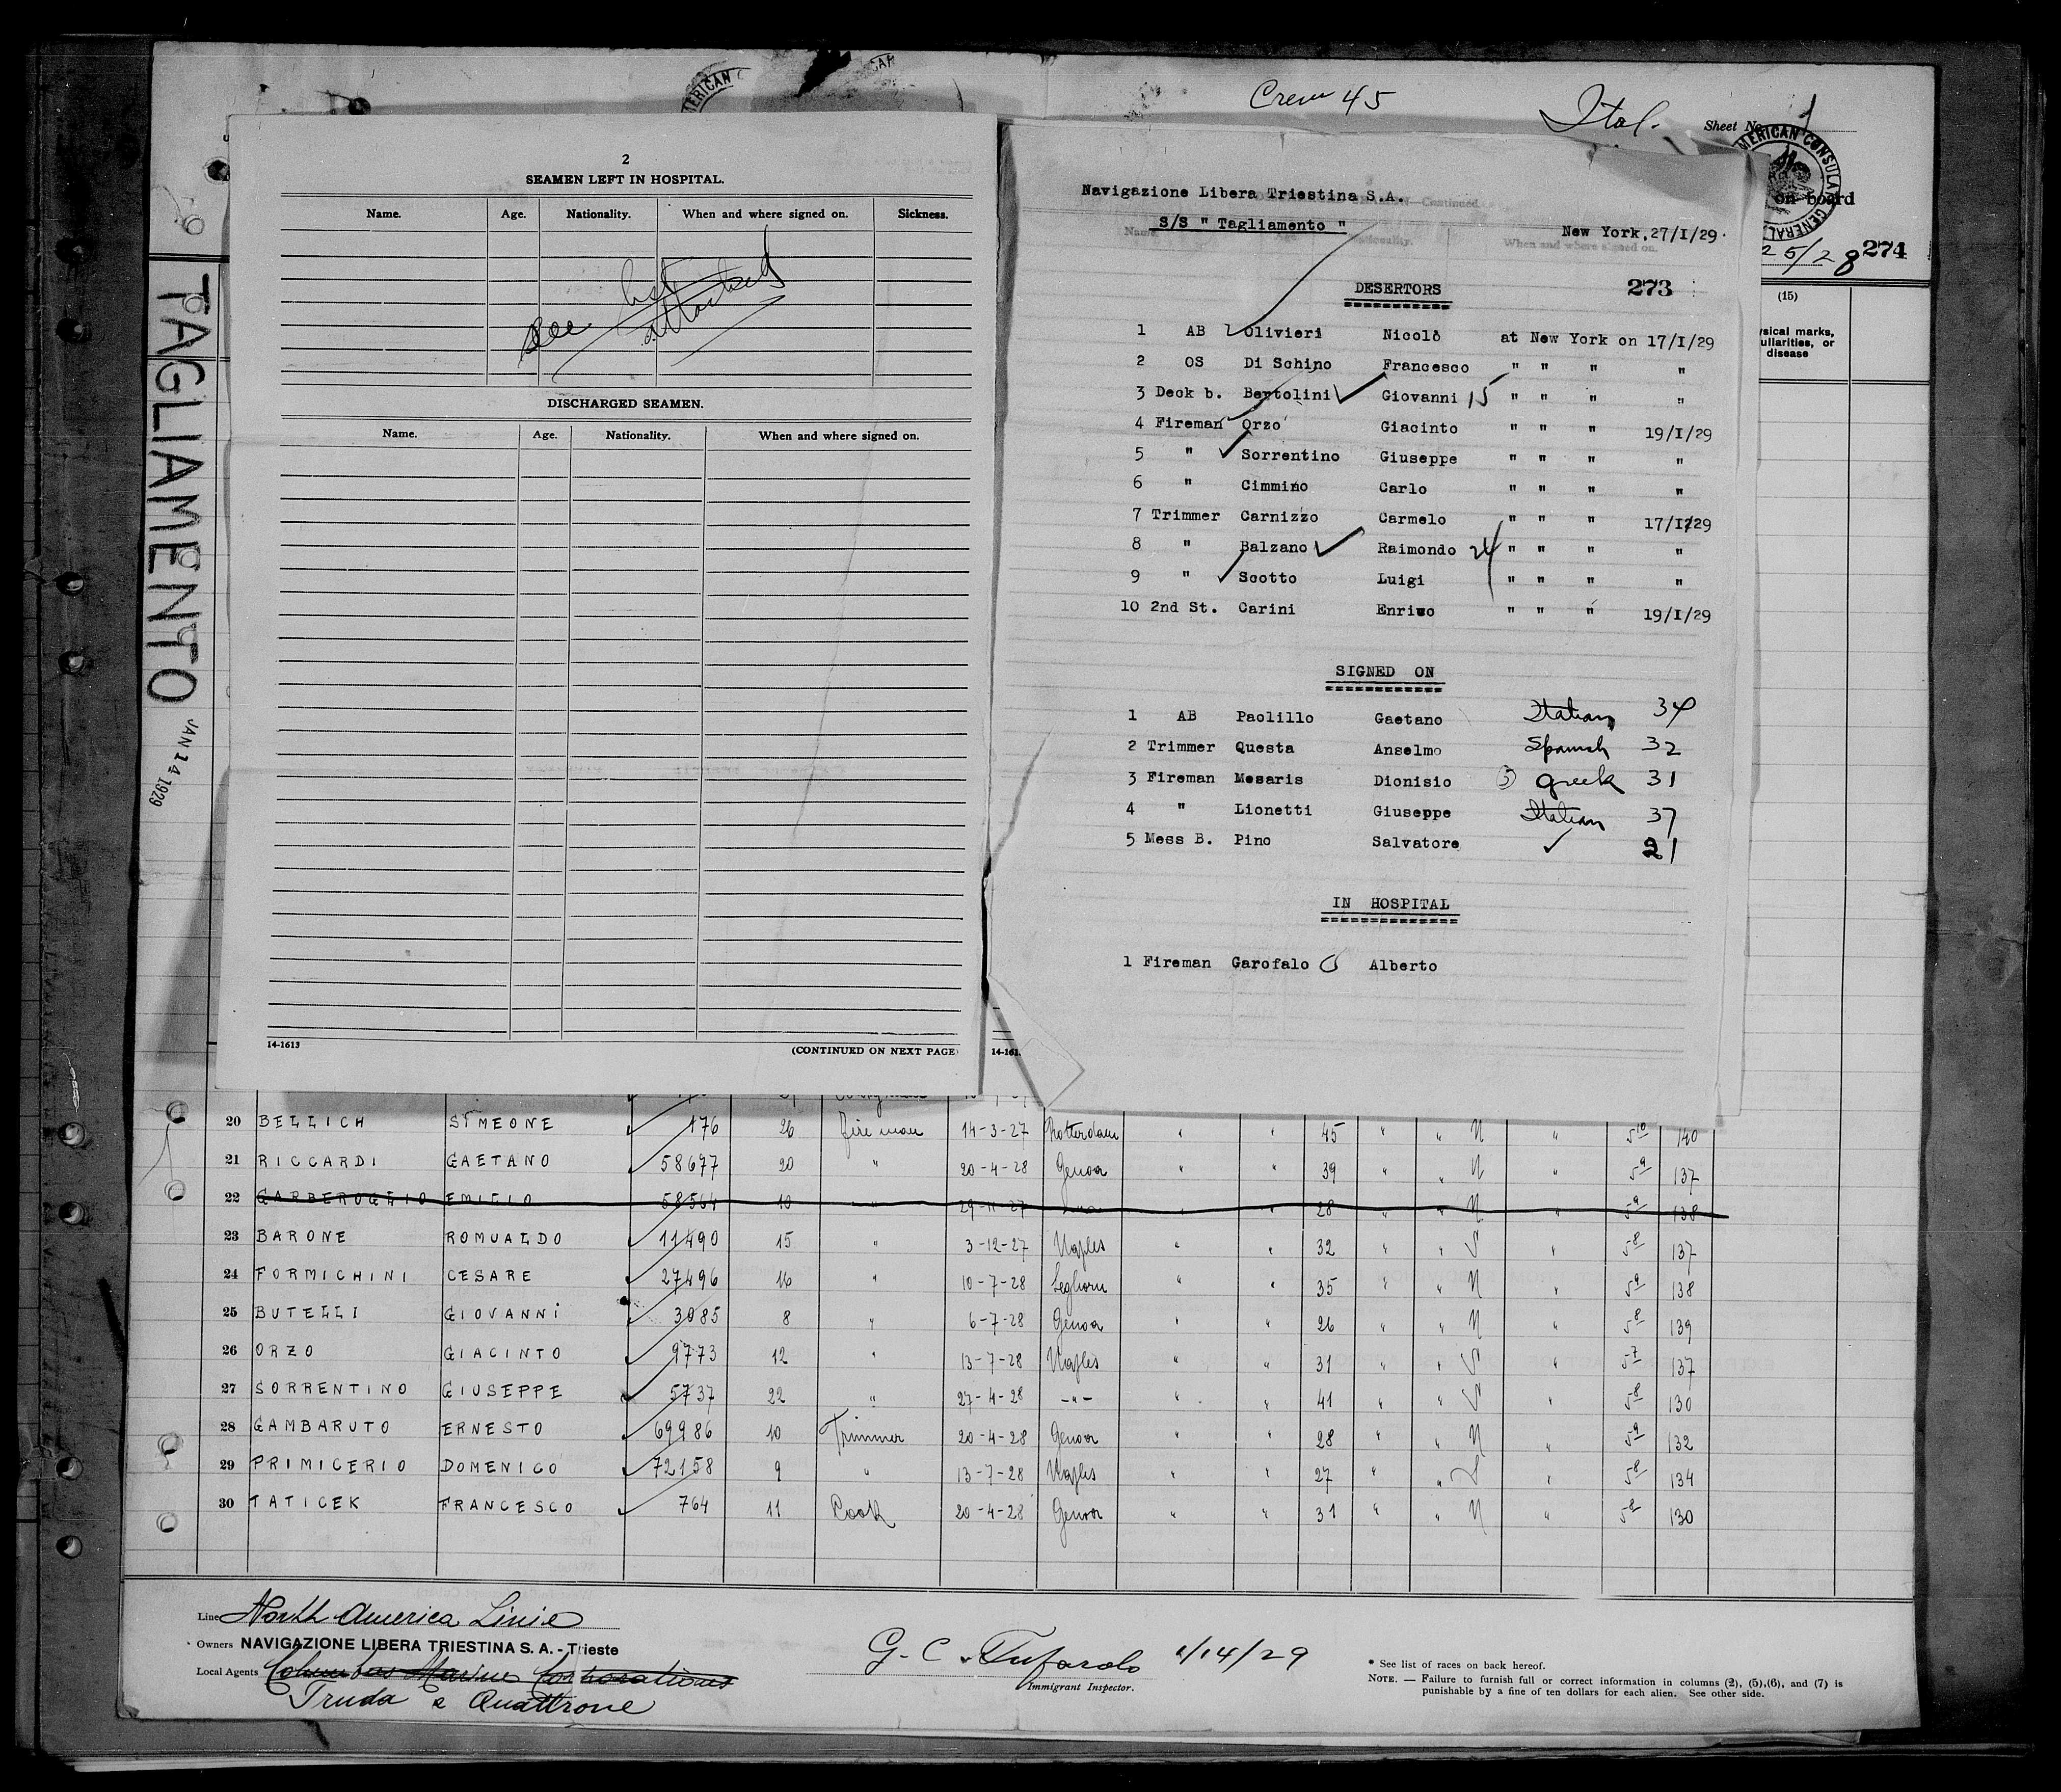 Crew 45
Ital.
Sheet No. 1
AMERICAN CONSULAR GENERAL
on board
25/28 274
(15)
sical marks,
uliarities, or
disease
TAGLIAMENTO
JAN 14 1929
2
SEAMEN LEFT IN HOSPITAL.
Name. Age. Nationality. When and where signed on. Sickness.
See list attached
DISCHARGED SEAMEN.
Name. Age. Nationality. When and where signed on.
14-1613 (CONTINUED ON NEXT PAGE)
14-161
Navigazione Libera Triestina S.A.
—Continued.
S/S " Tagliamento "
New York,27/I/29.
Name. Nationality. When and where signed on.
DESERTORS 273
1 AB Olivieri Nicolò at New York on 17/I/29
2 OS Di Schino Francesco " " " "
3 Deck b. Bertolini Giovanni 15 " " " "
4 Fireman Orzo Giacinto " " " 19/I/29
5 " Sorrentino Giuseppe " " " "
6 " Cimmino Carlo " " " "
7 Trimmer Carnizzo Carmelo " " " 17/I/29
8 " Balzano Raimondo 24 " " " "
9 " Scotto Luigi " " " "
10 2nd St. Carini Enrico " " " 19/I/29
SIGNED ON
1 AB Paolillo Gaetano Italian 34
2 Trimmer Questa Anselmo Spanish 32
3 Fireman Mesaris Dionisio (3) Greek 31
4 " Lionetti Giuseppe Italian 37
5 Mess B. Pino Salvatore ✓ 21
IN HOSPITAL
1 Fireman Garofalo Alberto
20 BELLICH SIMEONE 176 26 Fireman 14-3-27 Rotterdam " " 45 " " N " 5 10 140
21 RICCARDI GAETANO 58677 20 " 20-4-28 Genoa " " 39 " " N " 5 9 137
22 GARBEROGLIO EMILIO 58564 10 " 29-11-27 " " 28 " " N " 5 9 138
23 BARONE ROMUALDO 11490 15 " 3-12-27 Naples " " 32 " " S " 5 8 137
24 FORMICHINI CESARE 27496 16 " 10-7-28 Leghorn " " 35 " " N " 5 9 138
25 BUTELLI GIOVANNI 3085 8 " 6-7-28 Genoa " " 26 " " N " 5 8 139
26 ORZO GIACINTO 9773 12 " 13-7-28 Naples " " 31 " " S " 5 7 137
27 SORRENTINO GIUSEPPE 5737 22 " 27-4-28 -"- " " 41 " " S " 5 8 130
28 GAMBARUTO ERNESTO 69986 10 Trimmer 20-4-28 Genoa " " 28 " " N " 5 9 132
29 PRIMICERIO DOMENICO 72158 9 " 13-7-28 Naples " " 27 " " S " 5 8 134
30 TATICEK FRANCESCO 764 11 Cook 20-4-28 Genoa " " 31 " " N " 5 8 130
Line North America Linie
Owners NAVIGAZIONE LIBERA TRIESTINA S. A. - Trieste
Local Agents Columbus Marine Corporations
Truda e Quattrone
G. C. Tufarolo 1/14/29
Immigrant Inspector.
* See list of races on back hereof.
NOTE. — Failure to furnish full or correct information in columns (2), (5),(6), and (7) is
punishable by a fine of ten dollars for each alien. See other side.